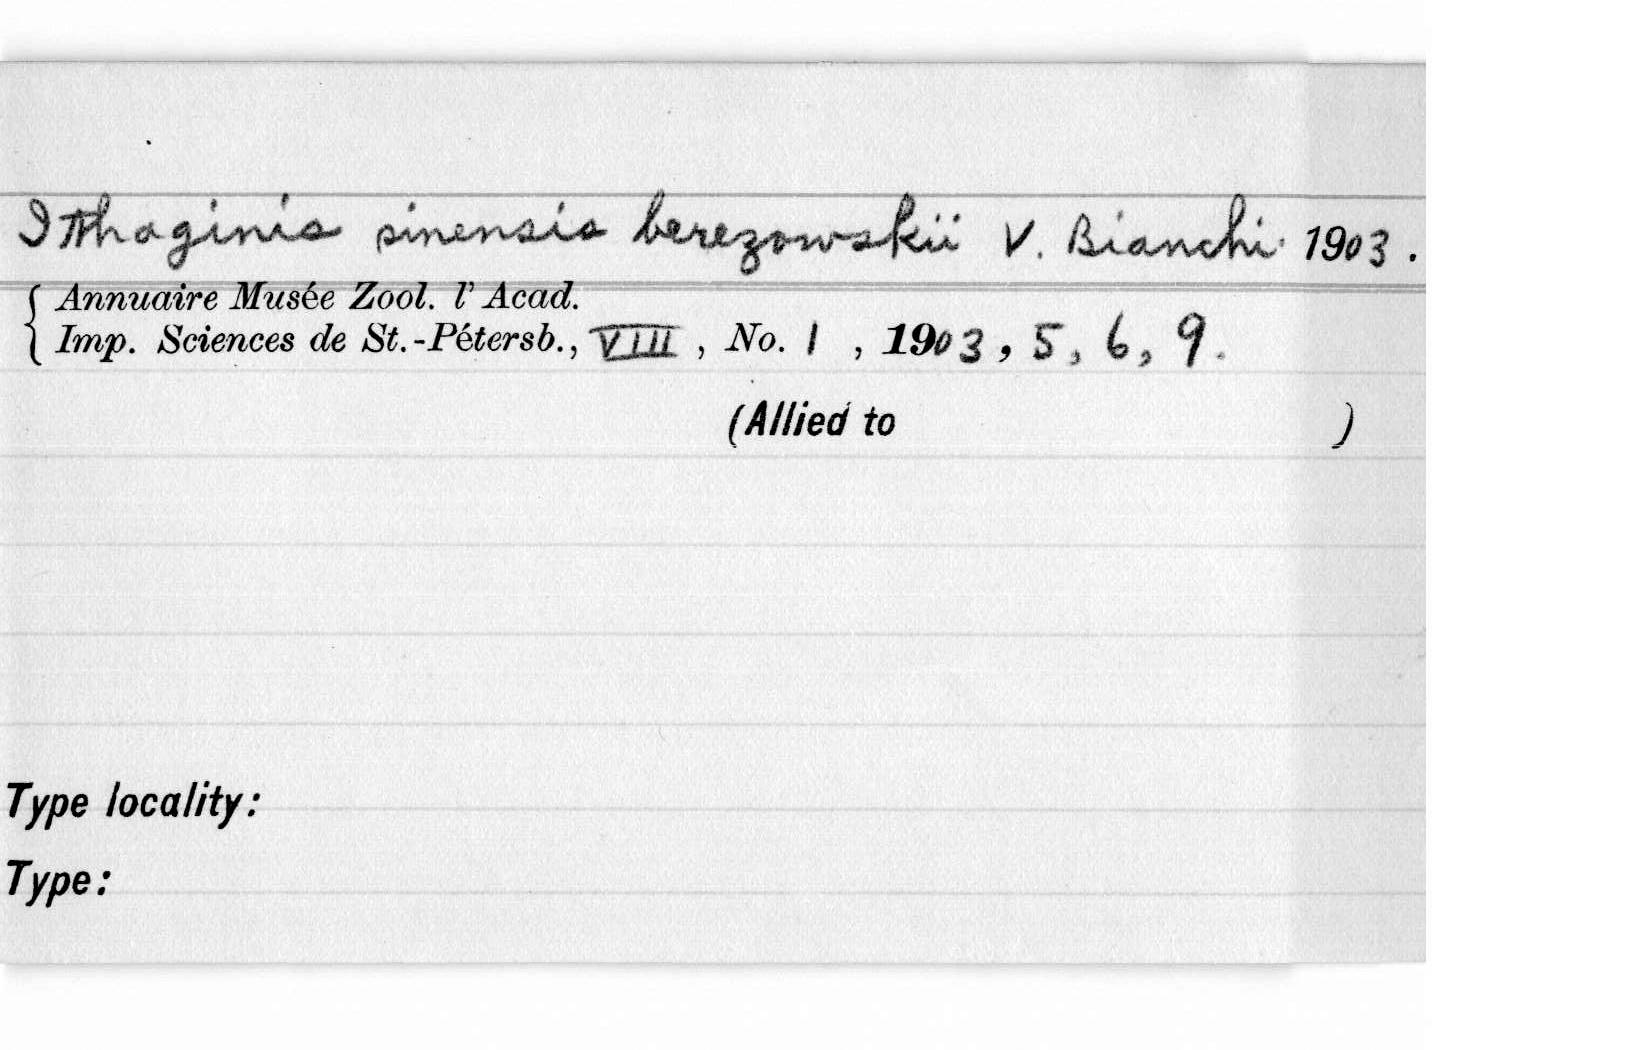 Ithaginis sinensis berezowskii V. Bianchi 1903.
Annuaire Musée Zool. l' Acad.
Imp. Sciences de St.-Pétersb., VIII, No. 1, 1903, 5, 6, 9.
(Allied to )
Type locality:
Type: